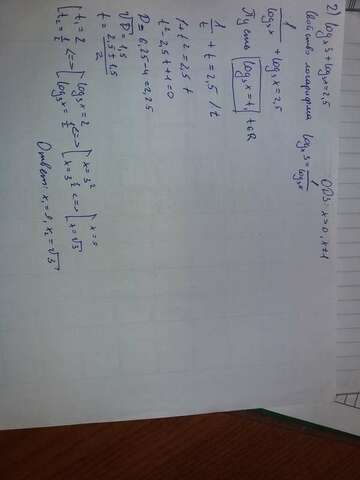 2) logₓ3 + log₃x = 2,5
ОДЗ: x > 0, x ≠ 1
Свойство логарифма logₓ3 = 1/log₃x
1/log₃x + log₃x = 2,5
Пусть log₃x = t, t∈R
1/t + t = 2,5 /t
1 + t² = 2,5 t
t² - 2,5 t + 1 = 0
D = 6,25 - 4 = 2,25
√D = 1,5
t = (2,5 ± 1,5)/2
[t₁ = 2 <=> [log₃x = 2 <=> [x = 3² <=> [x = 9
[t₂ = 1/2 [log₃x = 1/2 [x = 3^(1/2) [x = √3
Ответ: x₁ = 9, x₂ = √3